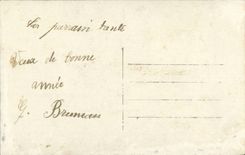 Les parrain tante
Vœux de bonne
année
J. Bruneau